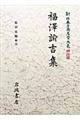 新日本古典文学大系 明治編
福澤諭吉集
岩波書店